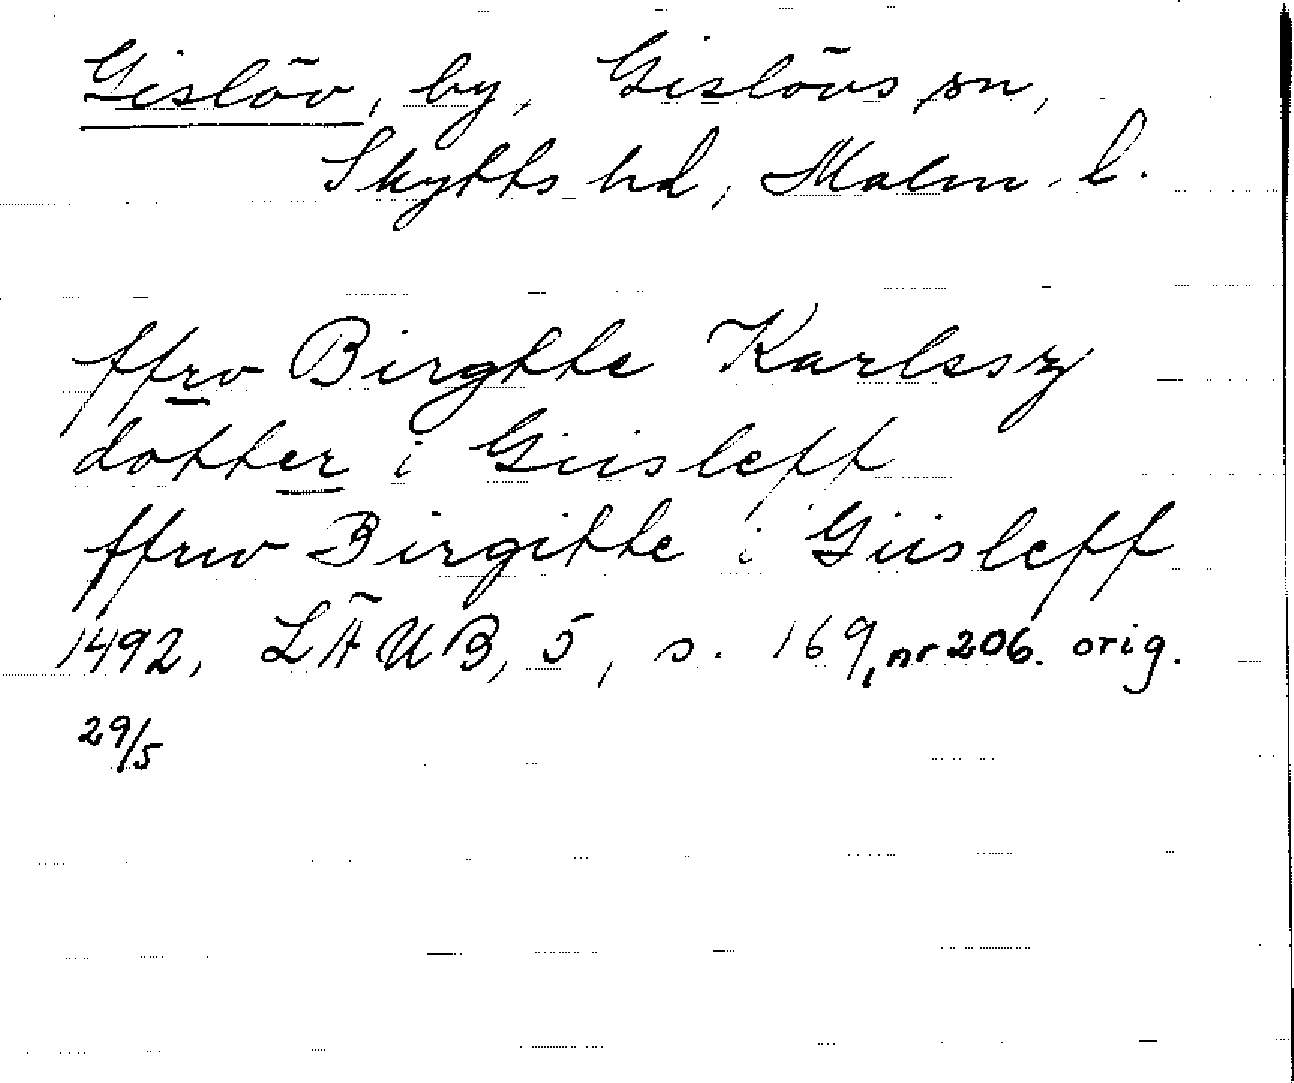 Gislöv, by, Gislövs sn,
Skytts hd, Malm. l.
ffro Birgtte Karlssz
dotter i Giisleff
ffrw Birgitte i Giisleff
1492, LÄUB, 5, s. 169, nr 206. orig.
29/5